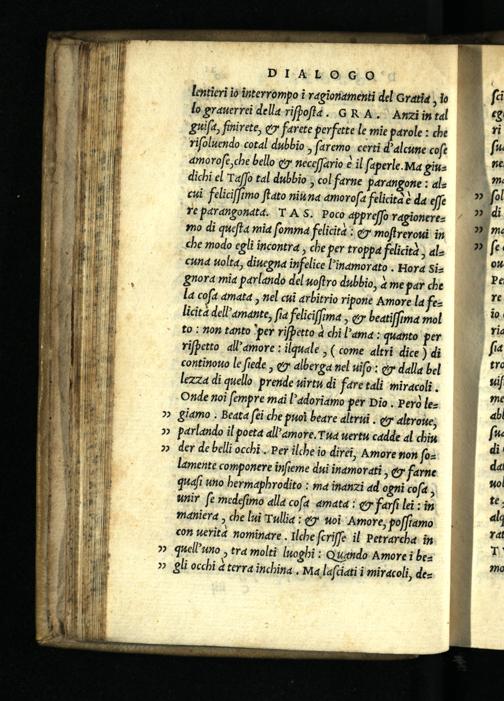 DIALOGO
lentieri io interrompo i ragionamenti del Gratia, io
lo grauerrei della risposta. GRA. Anzi in tal
guisa, finirete, & farete perfette le mie parole: che
risoluendo cotal dubbio, saremo certi d'alcune cose
amorose, che bello & necessario è il saperle. Ma giu=
dichi el Tasso tal dubbio, col farne parangone: al=
cui felicissimo stato niuna amorosa felicità è da esse
re parangonata. TAS. Poco appresso ragionere=
mo di questa mia somma felicità: & mostrerouui in
che modo egli incontra, che per troppa felicità, al=
cuna uolta, diuegna infelice l'inamorato. Hora Si=
gnora mia parlando del uostro dubbio, à me par che
la cosa amata, nel cui arbitrio ripone Amore la fe=
licità dell'amante, sia felicissima, & beatissima mol
to: non tanto per rispetto à chi l'ama: quanto per
rispetto all'amore: ilquale, (come altri dice) di
continouo le siede, & alberga nel uiso: & dalla bel
lezza di quello prende uirtu di fare tali miracoli.
Onde noi sempre mai l'adoriamo per Dio. Però le=
„ giamo. Beata sei che puoi beare altrui. & altroue,
„ parlando il poeta all'amore. Tua uertu cadde al chiu
„ der de belli occhi. Per ilche io direi, Amore non so=
lamente componere insieme dui inamorati, & farne
quasi uno hermaphrodito: ma inanzi ad ogni cosa,
unir se medesimo alla cosa amata: & farsi lei: in
maniera, che lui Tullia: & uoi Amore, possiamo
con uerità nominare. Ilche scrisse il Petrarcha in
„ quell'uno, tra molti luoghi: Quando Amore i be=
„ gli occhi à terra inchina. Ma lasciati i miracoli, de=